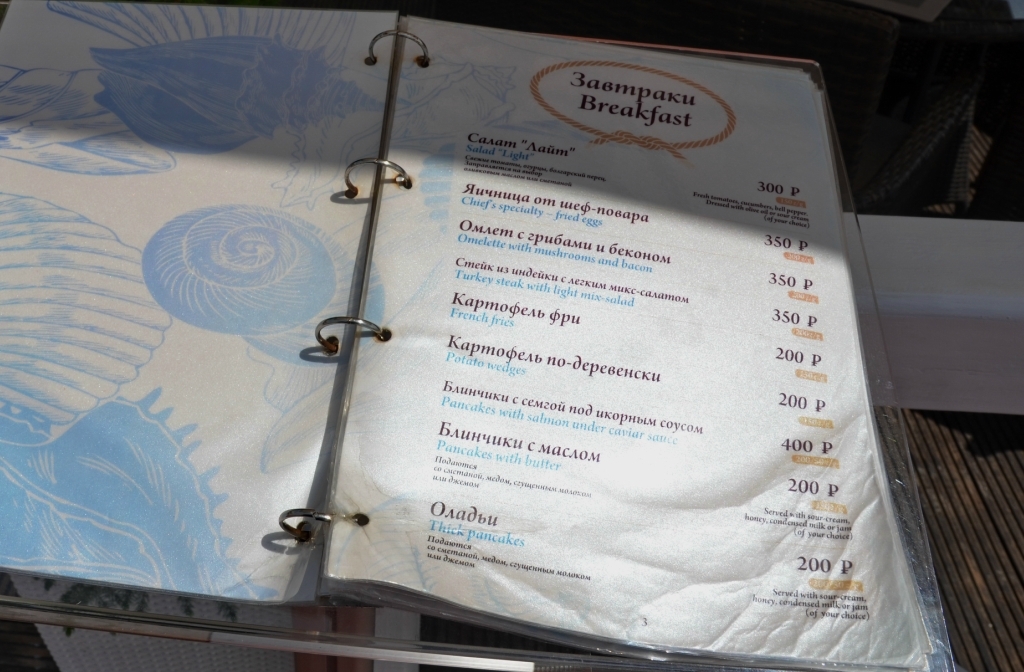 Завтраки
Breakfast
Салат "Лайт"
Salad "Light"
Свежие томаты, огурцы, болгарский перец.
Заправляется на выбор
оливковым маслом или сметаной
300 ₽
Fresh tomatoes, cucumbers, bell pepper.
Dressed with olive oil or sour cream
(of your choice)
Яичница от шеф-повара
Chief's specialty – fried eggs
350 ₽
Омлет с грибами и беконом
Omelette with mushrooms and bacon
350 ₽
Стейк из индейки с легким микс-салатом
Turkey steak with light mix-salad
350 ₽
Картофель фри
French fries
200 ₽
Картофель по-деревенски
Potato wedges
200 ₽
Блинчики с семгой под икорным соусом
Pancakes with salmon under caviar sauce
400 ₽
Блинчики с маслом
Pancakes with butter
Подаются
со сметаной, медом, сгущенным молоком
или джемом
200 ₽
Served with sour-cream,
honey, condensed milk or jam
(of your choice)
Оладьи
Thick pancakes
Подаются
со сметаной, медом, сгущенным молоком
или джемом
200 ₽
Served with sour-cream,
honey, condensed milk or jam
(of your choice)
3